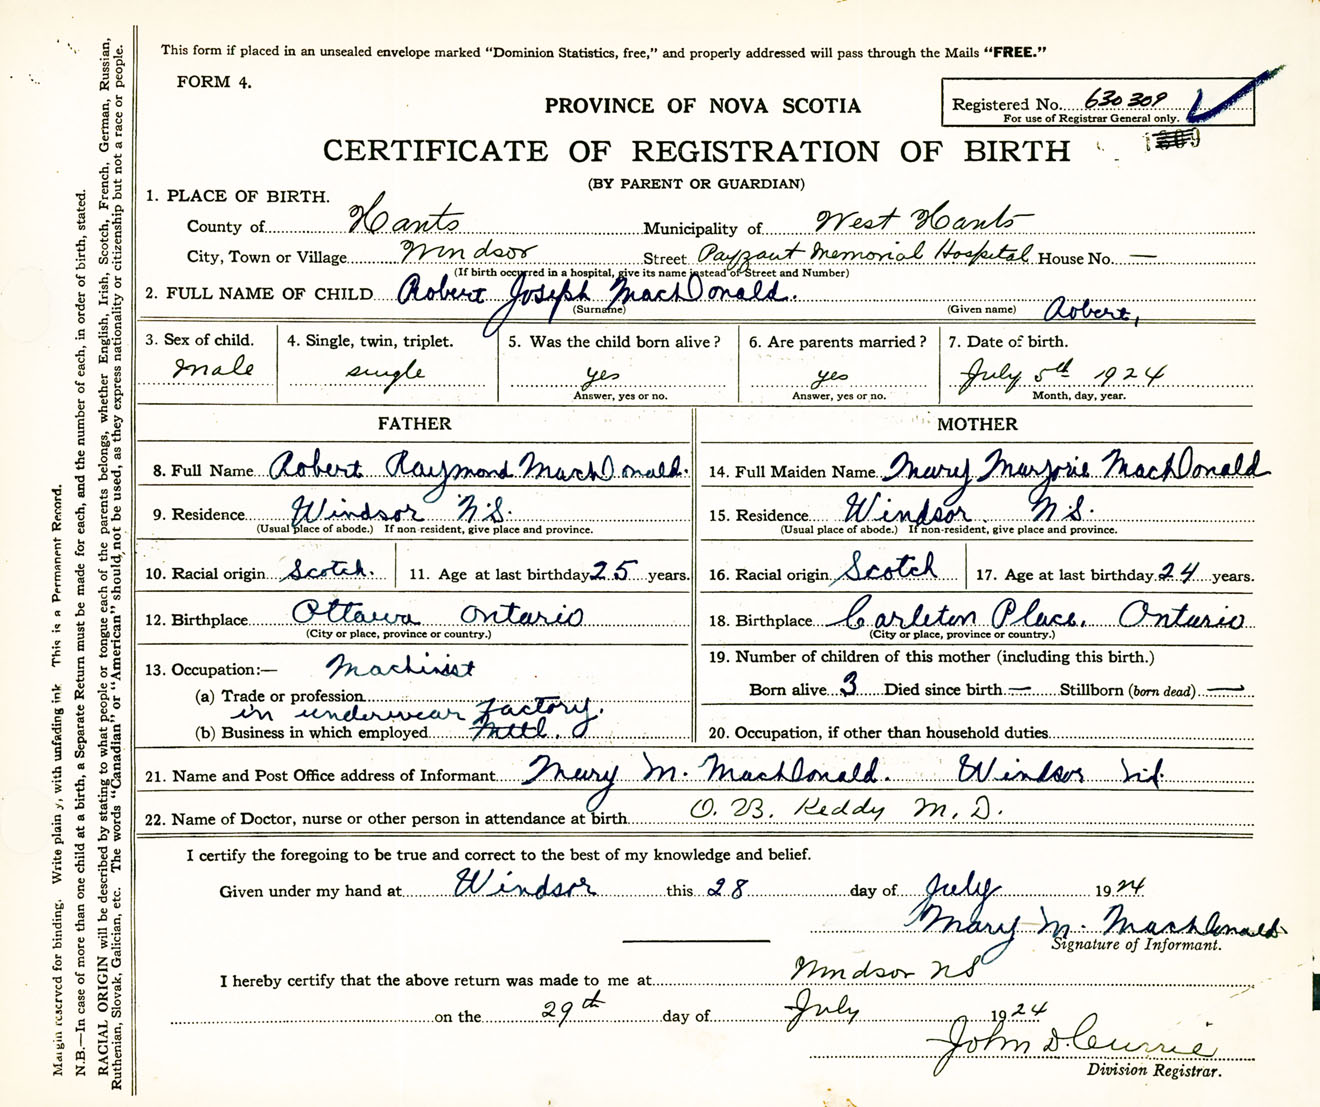 This form if placed in an unsealed envelope marked "Dominion Statistics, free," and properly addressed will pass through the Mails "FREE."
FORM 4.
Registered No. 630309
For use of Registrar General only.
PROVINCE OF NOVA SCOTIA
CERTIFICATE OF REGISTRATION OF BIRTH
(BY PARENT OR GUARDIAN)
1. PLACE OF BIRTH.
County of Hants Municipality of West Hants
City, Town or Village Windsor Street Payzant Memorial Hospital House No. —
(If birth occurred in a hospital, give its name instead of Street and Number)
2. FULL NAME OF CHILD Robert Joseph MacDonald.
(Surname) (Given name) Robert,
3. Sex of child. 4. Single, twin, triplet. 5. Was the child born alive? 6. Are parents married? 7. Date of birth.
male single yes yes July 5th 1924
Answer, yes or no. Answer, yes or no. Month, day, year.
FATHER MOTHER
8. Full Name Robert Raymond MacDonald. 14. Full Maiden Name Mary Marjorie MacDonald
9. Residence Windsor N.S. 15. Residence Windsor N.S.
(Usual place of abode.) If non-resident, give place and province. (Usual place of abode.) If non-resident, give place and province.
10. Racial origin Scotch. 11. Age at last birthday 25 years. 16. Racial origin Scotch 17. Age at last birthday 24 years.
12. Birthplace Ottawa Ontario 18. Birthplace Carleton Place, Ontario
(City or place, province or country.) (City or place, province or country.)
13. Occupation:— Machinist 19. Number of children of this mother (including this birth.)
(a) Trade or profession Born alive 3 Died since birth — Stillborn (born dead) —
in underwear factory.
(b) Business in which employed 20. Occupation, if other than household duties
21. Name and Post Office address of Informant Mary M. MacDonald. Windsor N.S.
22. Name of Doctor, nurse or other person in attendance at birth O. B. Keddy M.D.
I certify the foregoing to be true and correct to the best of my knowledge and belief.
Given under my hand at Windsor this 28 day of July 1924
Mary M. MacDonald
Signature of Informant.
I hereby certify that the above return was made to me at Windsor NS
on the 29th day of July 1924
John D. Currie
Division Registrar.
Margin reserved for binding. Write plainly, with unfading ink This is a Permanent Record.
N.B.—In case of more than one child at a birth, a Separate Return must be made for each, and the number of each, in order of birth, stated.
RACIAL ORIGIN will be described by stating to what people or tongue each of the parents belongs, whether English, Irish, Scotch, French, German, Russian,
Ruthenian, Slovak, Galician, etc. The words "Canadian" or "American" should not be used, as they express nationality or citizenship but not a race or people.